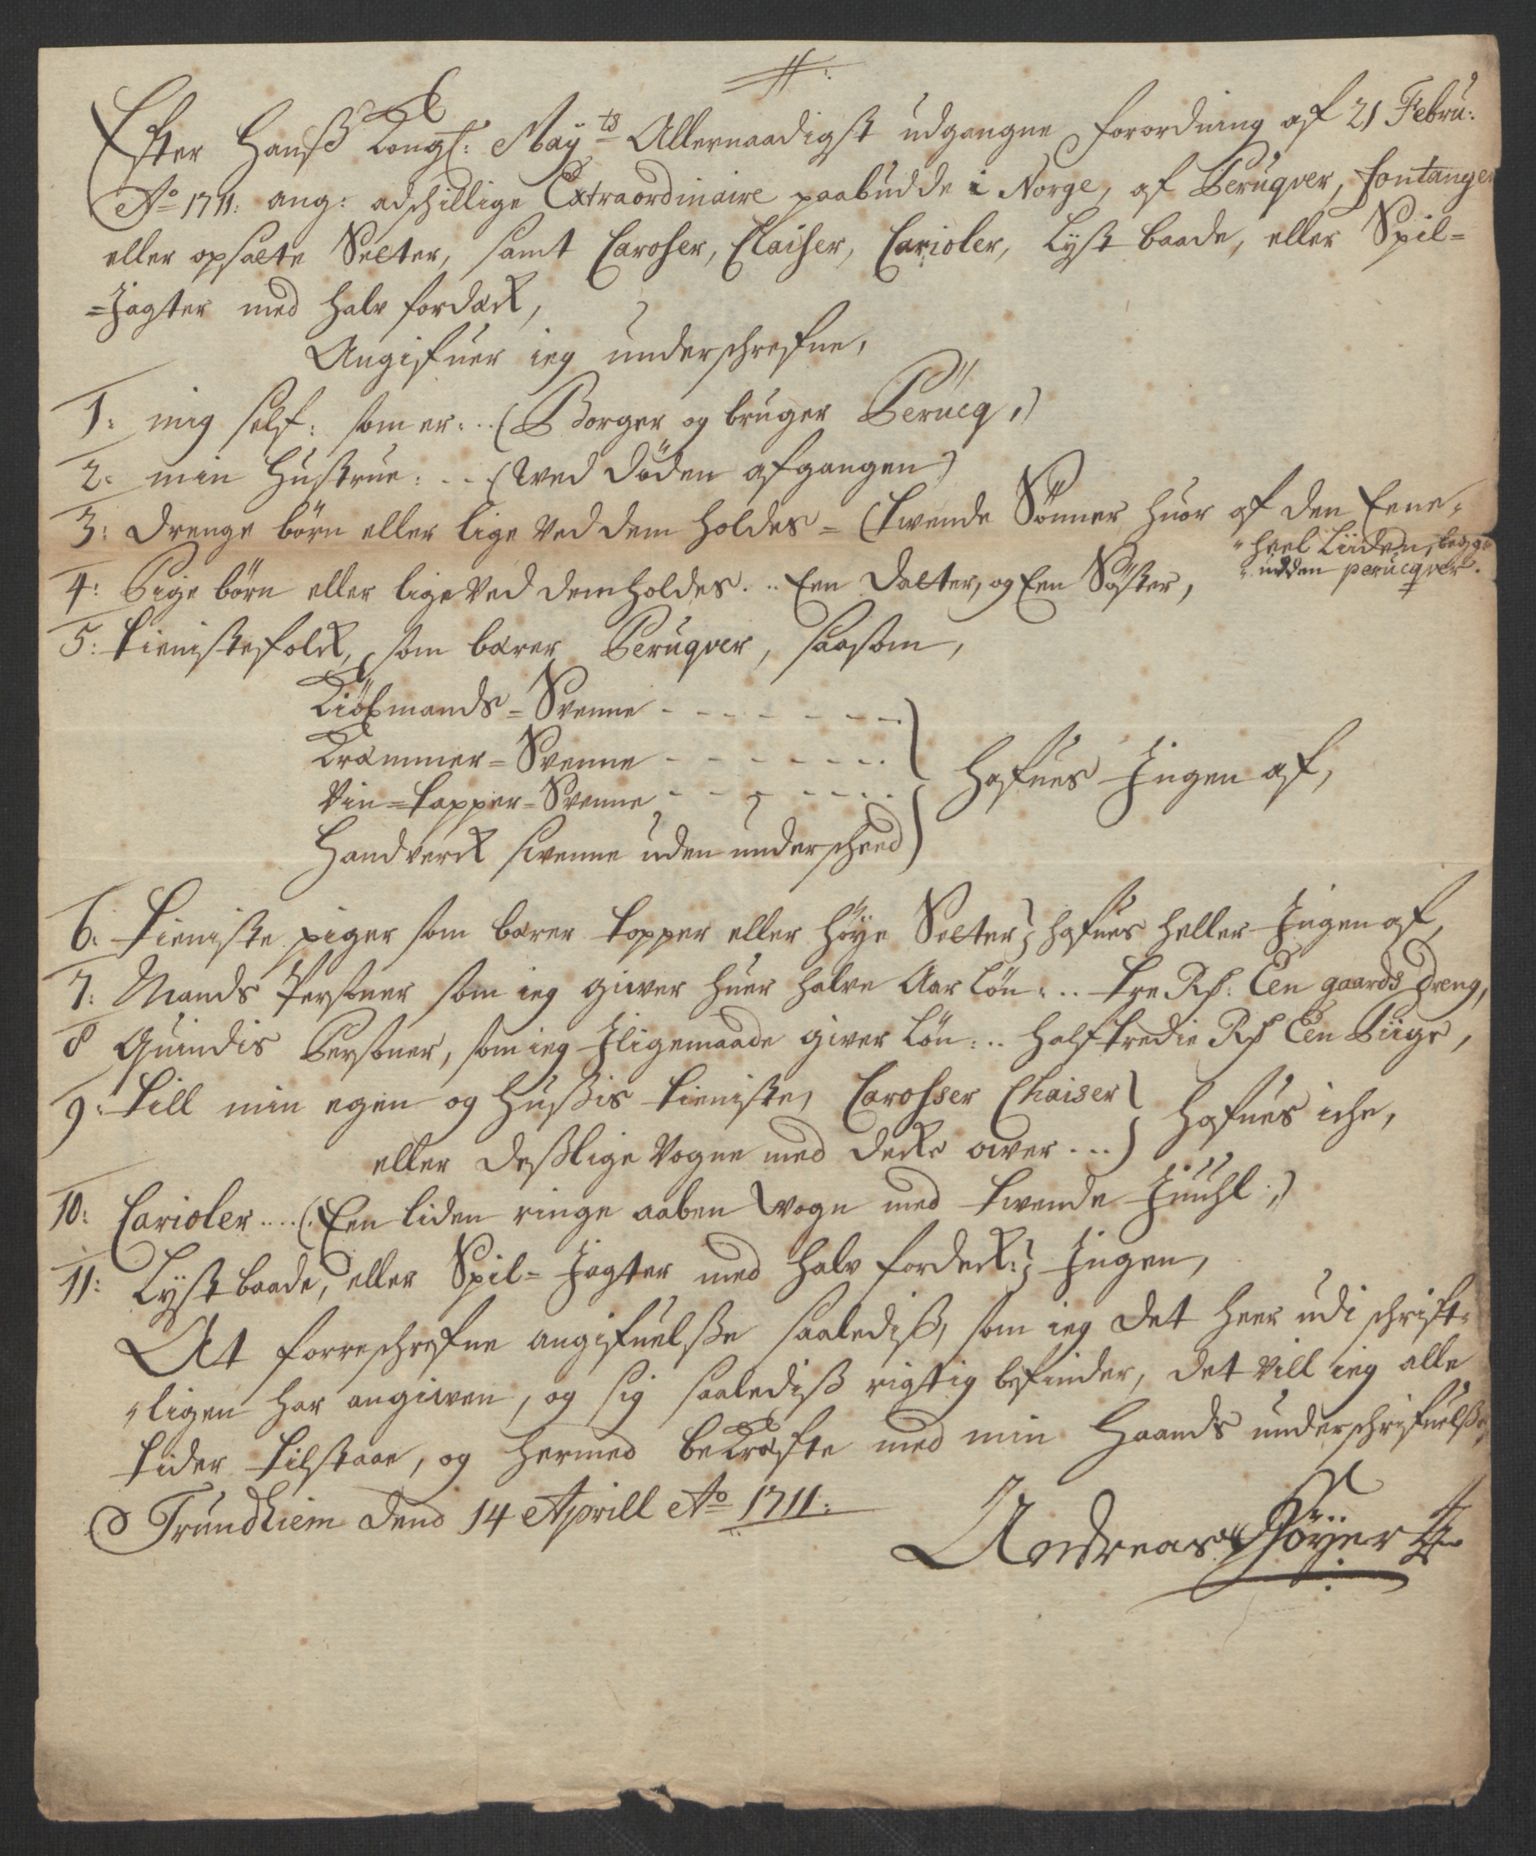 Efter Hanß Kongl: May:ts Allernaadigst udgangne forordning af 21 Febru:
Ao 1711: ang: adschillige Extraordinaire paabudde i Norge, af Peruqver, fontanger
eller opsatte Setter, samt Caroser, Chaiser, Carioler, Lyst baade, eller Spil=
=Jagter med halv fordæk,
Angifuer ieg underschrefne,
1: mig self: som er: .. (Borger og bruger Perucq,)
2: min Hustrue: .. (ved döden afgangen)
3: Drenge börn eller lige ved dem holdes = (tvende Sönner huor af den Eene
heel Liiden, begge
udden perucqver.
4: Pige börn eller lige ved dem holdes. .. Een Datter, og Een Söster,
5: tienistefolk, som bærer Peruqver, saasom,
Kiöbmands = Svenne - - - - - - -
Krammer = Svenne - - - - - - -
Vin = tapper = Svenne - - - - - -
Handverck svenne uden underscheed
hafues Ingen af,
6: tieniste piger som bærer topper eller höye Setter; hafues heller Ingen af,
7: Mands Persöner som ieg giver huer halve Aar Lön: .. tre Rd: Een gaards dreng,
8 Quindis Persöner, som ieg Iligemaade giver Lön: .. halftredie Rd Een Piige,
9: till min egen og Hußis tieniste, Carosser Chaiser
eller deßlige Vogne med decke over ...
hafues iche,
10: Carioler .... (Een liden ringe aaben Vogn med tvende Juuhl.)
11: Lyst baade, eller Spil= Jagter med halv fordeck: ; Ingen,
At forreschrefne angifuelße saalediß, som ieg det heer udi schrift=
ligen har angiiven, og sig saalediß rigtig befinder, det vill ieg alle
tider tilstaae, og hermed bekræfte med min Haands underschrifuelße,
Trundhiem dend 14 Aprill Ao 1711:
Andreas Höyer